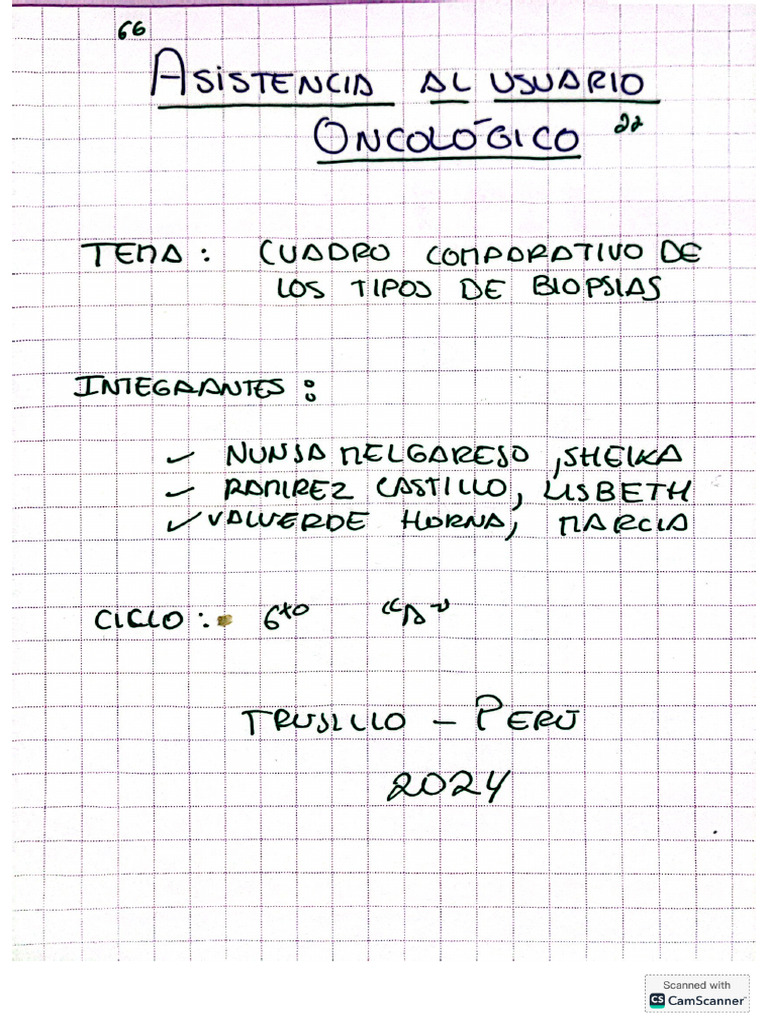 “ASISTENCIA AL USUARIO
ONCOLÓGICO”
TEMA: CUADRO COMPARATIVO DE
LOS TIPOS DE BIOPSIAS
INTEGRANTES:
✓ NUNJA MELGAREJO, SHEIKA
✓ RAMIREZ CASTILLO, LISBETH
✓ VALVERDE HORNA, MARCIA
CICLO: 6to “A”
TRUJILLO – PERU
2024
Scanned with
CS CamScanner